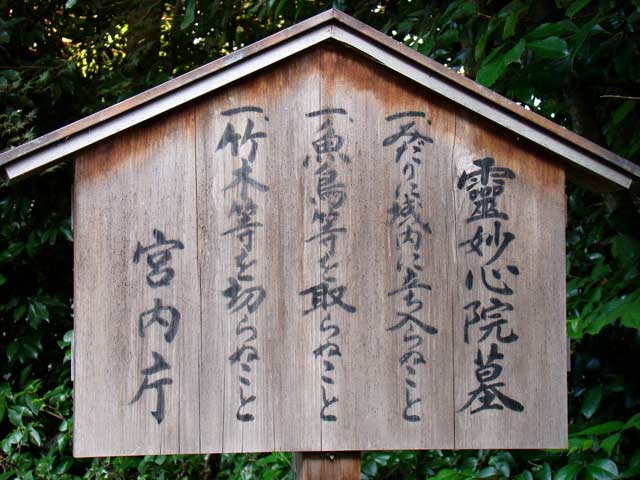 靈妙心院墓
一、みだりに域内に立ち入らぬこと
一、魚鳥等を取らぬこと
一、竹木等を切らぬこと
宮内庁